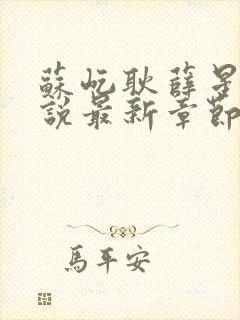 蘇屹耿薛星
說最新章節
馬平安